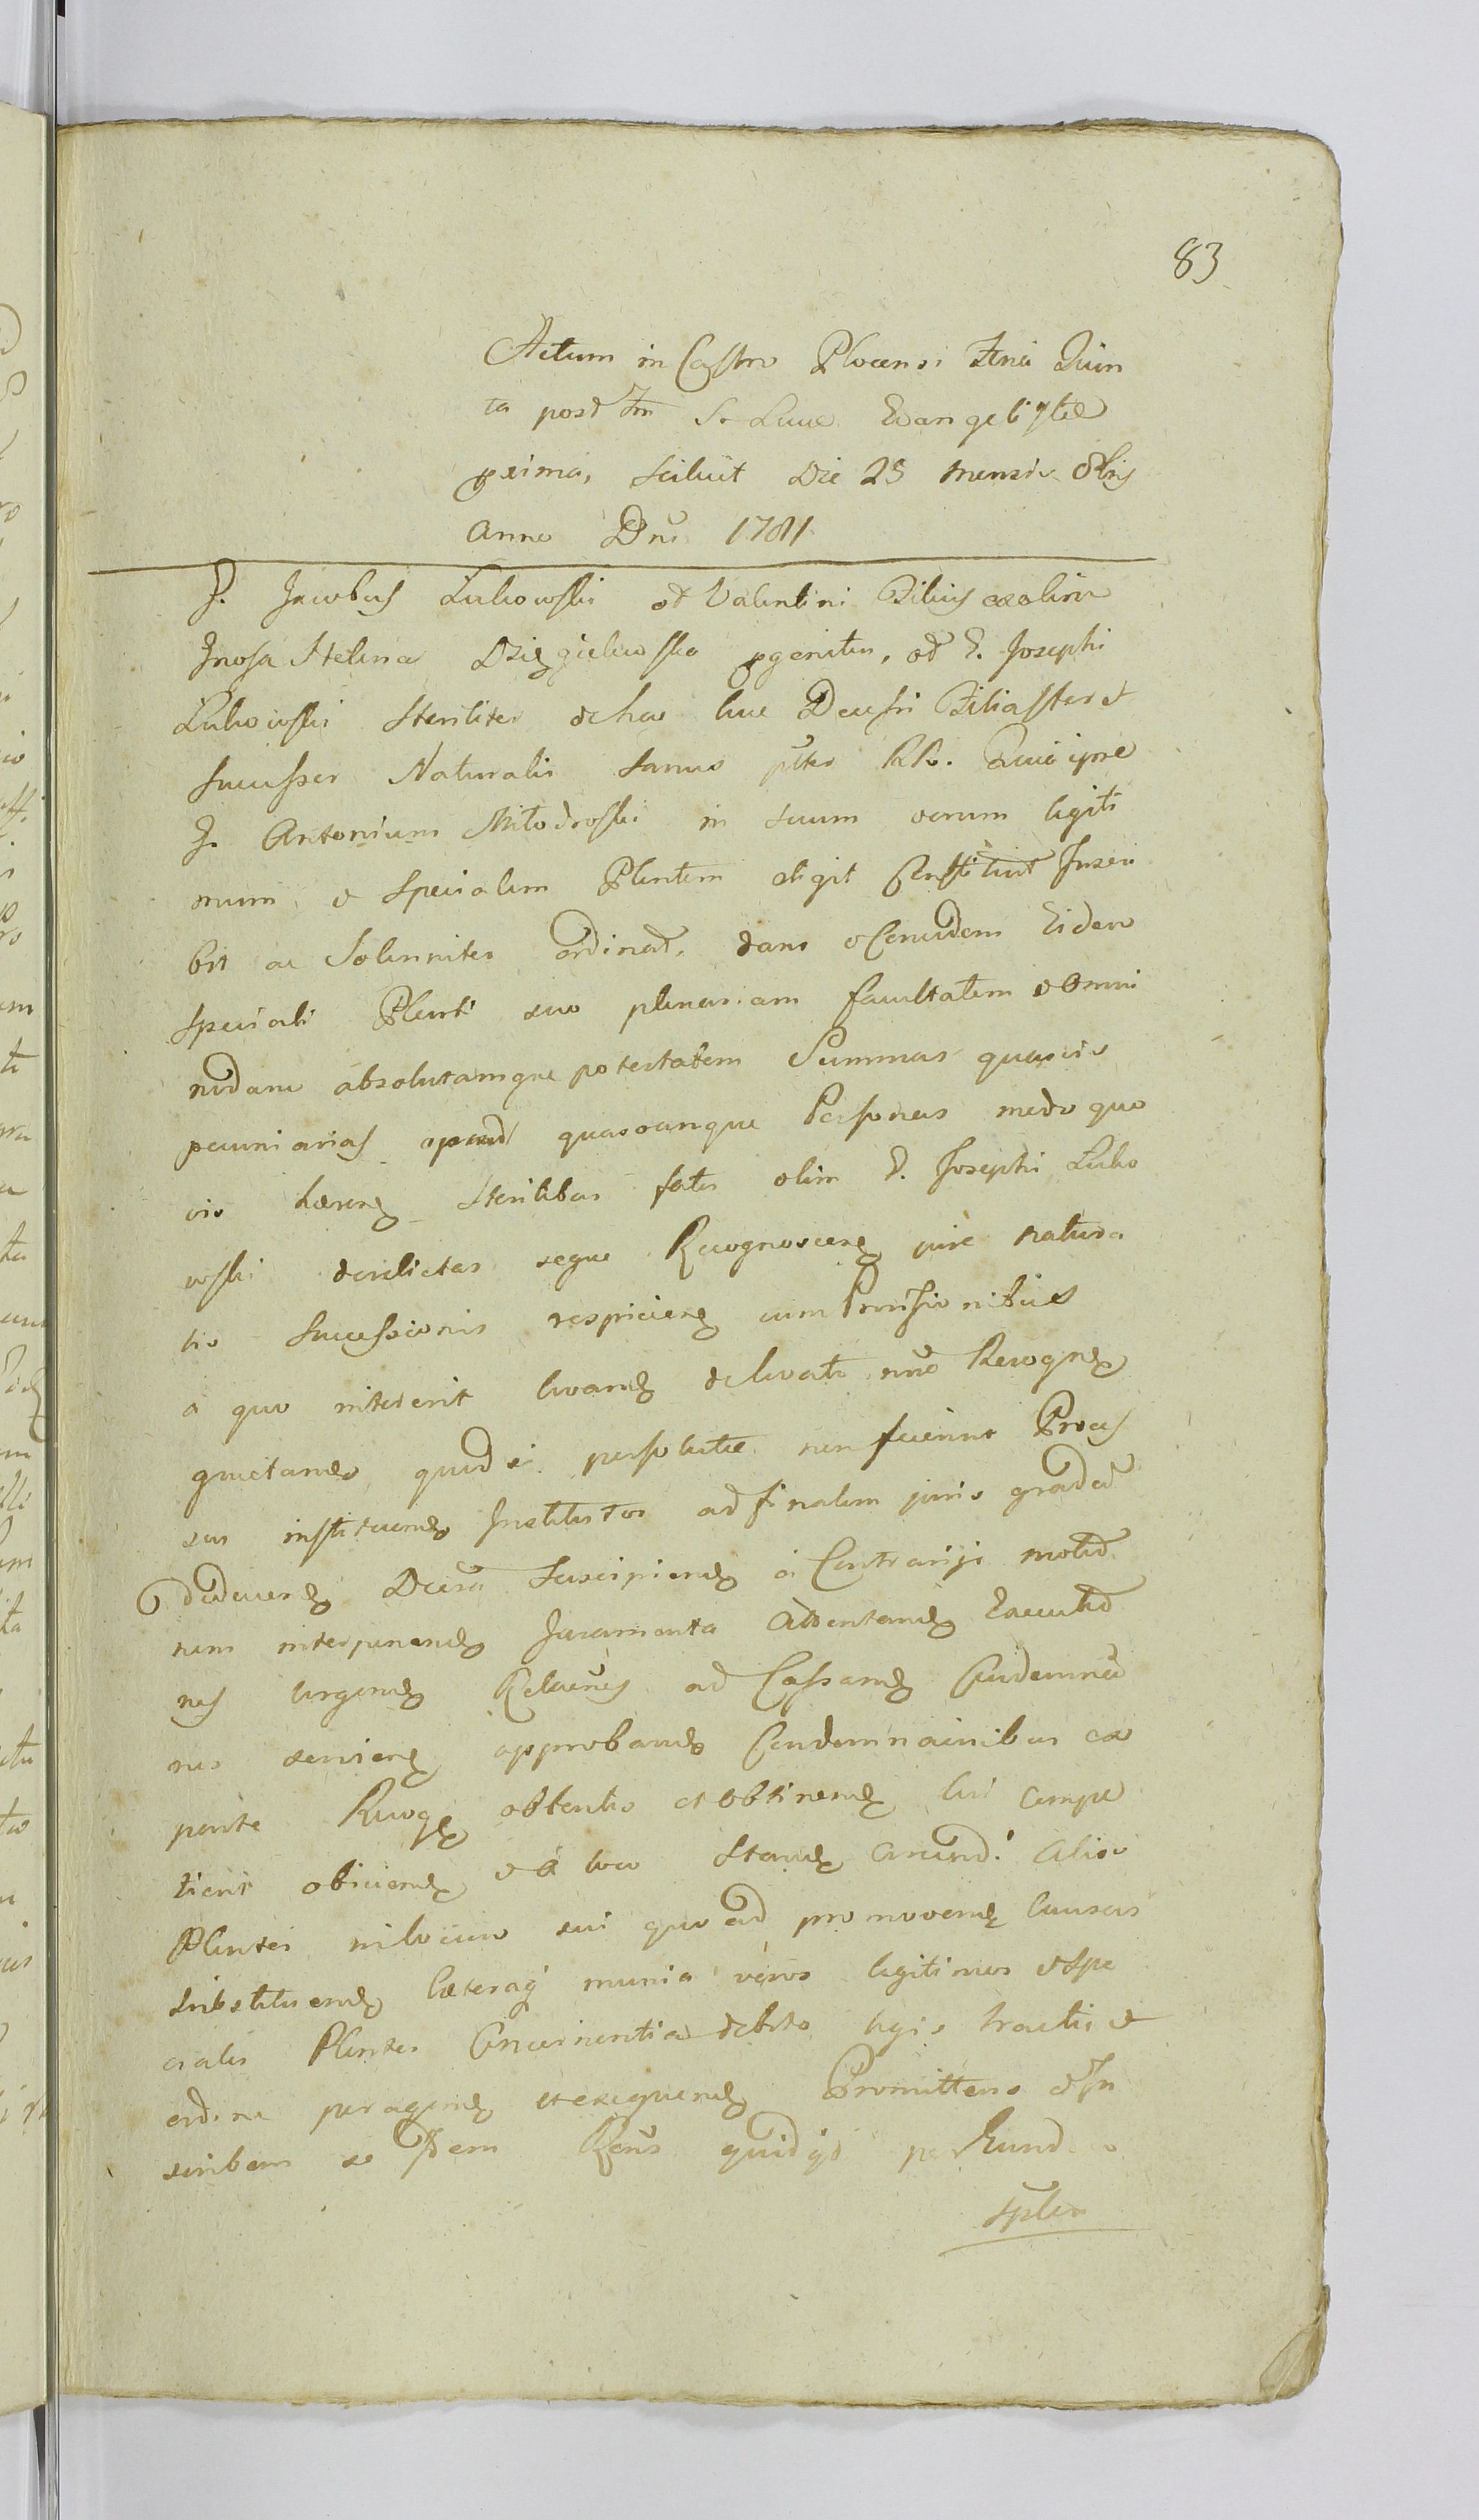 83
Actum in Castro Plocensi Fria Quin
ta post Ftm S. Lucæ Evangelistæ
pxima, scilicet Die 25 mensis 8bris
Anno Dni 1781
G. Jacobus Lukowski od Valentini Filius ex olim
Gnosa Helena Dzięgielewska pgenitus, od G. Josephi
Lukowski steriliter de hac luce Decessi Filiaster et
Successor Naturalis sanus pter RR. Quia ipse
G. Antonium Miłodroski in suum verum legiti
mum, et specialem Plentem eligit Constituit Inscri
bit ac Solenniter ordinat, dans et Concedem Eidem
speciali Plenti suo plenariam facultatem et omni
modam absolutamque potestatem Summas quasvis
pecuniarias apud quascunque Personas modo quo
vis hæren sterilibus fatis olim G. Josephi Luko
wski derelictas seque Recognoscen jure natura
lis Successionis respicien cum Provisionibus
a quo intererit levand et levatis nune Recogn
quietand, quod si persolutæ non fuerint Proces
sus instituend Institutos ad finalem juris gradu
deducend Decra suscipiend a Contrariji motio
nem interponend Juramenta Attentand Executio
nes urgend Relnes ad Cassand Condemna
nes servien approband Condemnanibus ex
parte Recog obtentis et obtinend cui compe
tierit obiiciend et a loco stand arcend. Alios
Plentes in locum sui quoad promovend causas
substituend Cæteraq munia veros legitimos et spe
ciales Plentes Concernentia debito legis tractu et
ordine peragend et exequend Promittens et In
scribens se idem Rens quidqd per Eund
splem